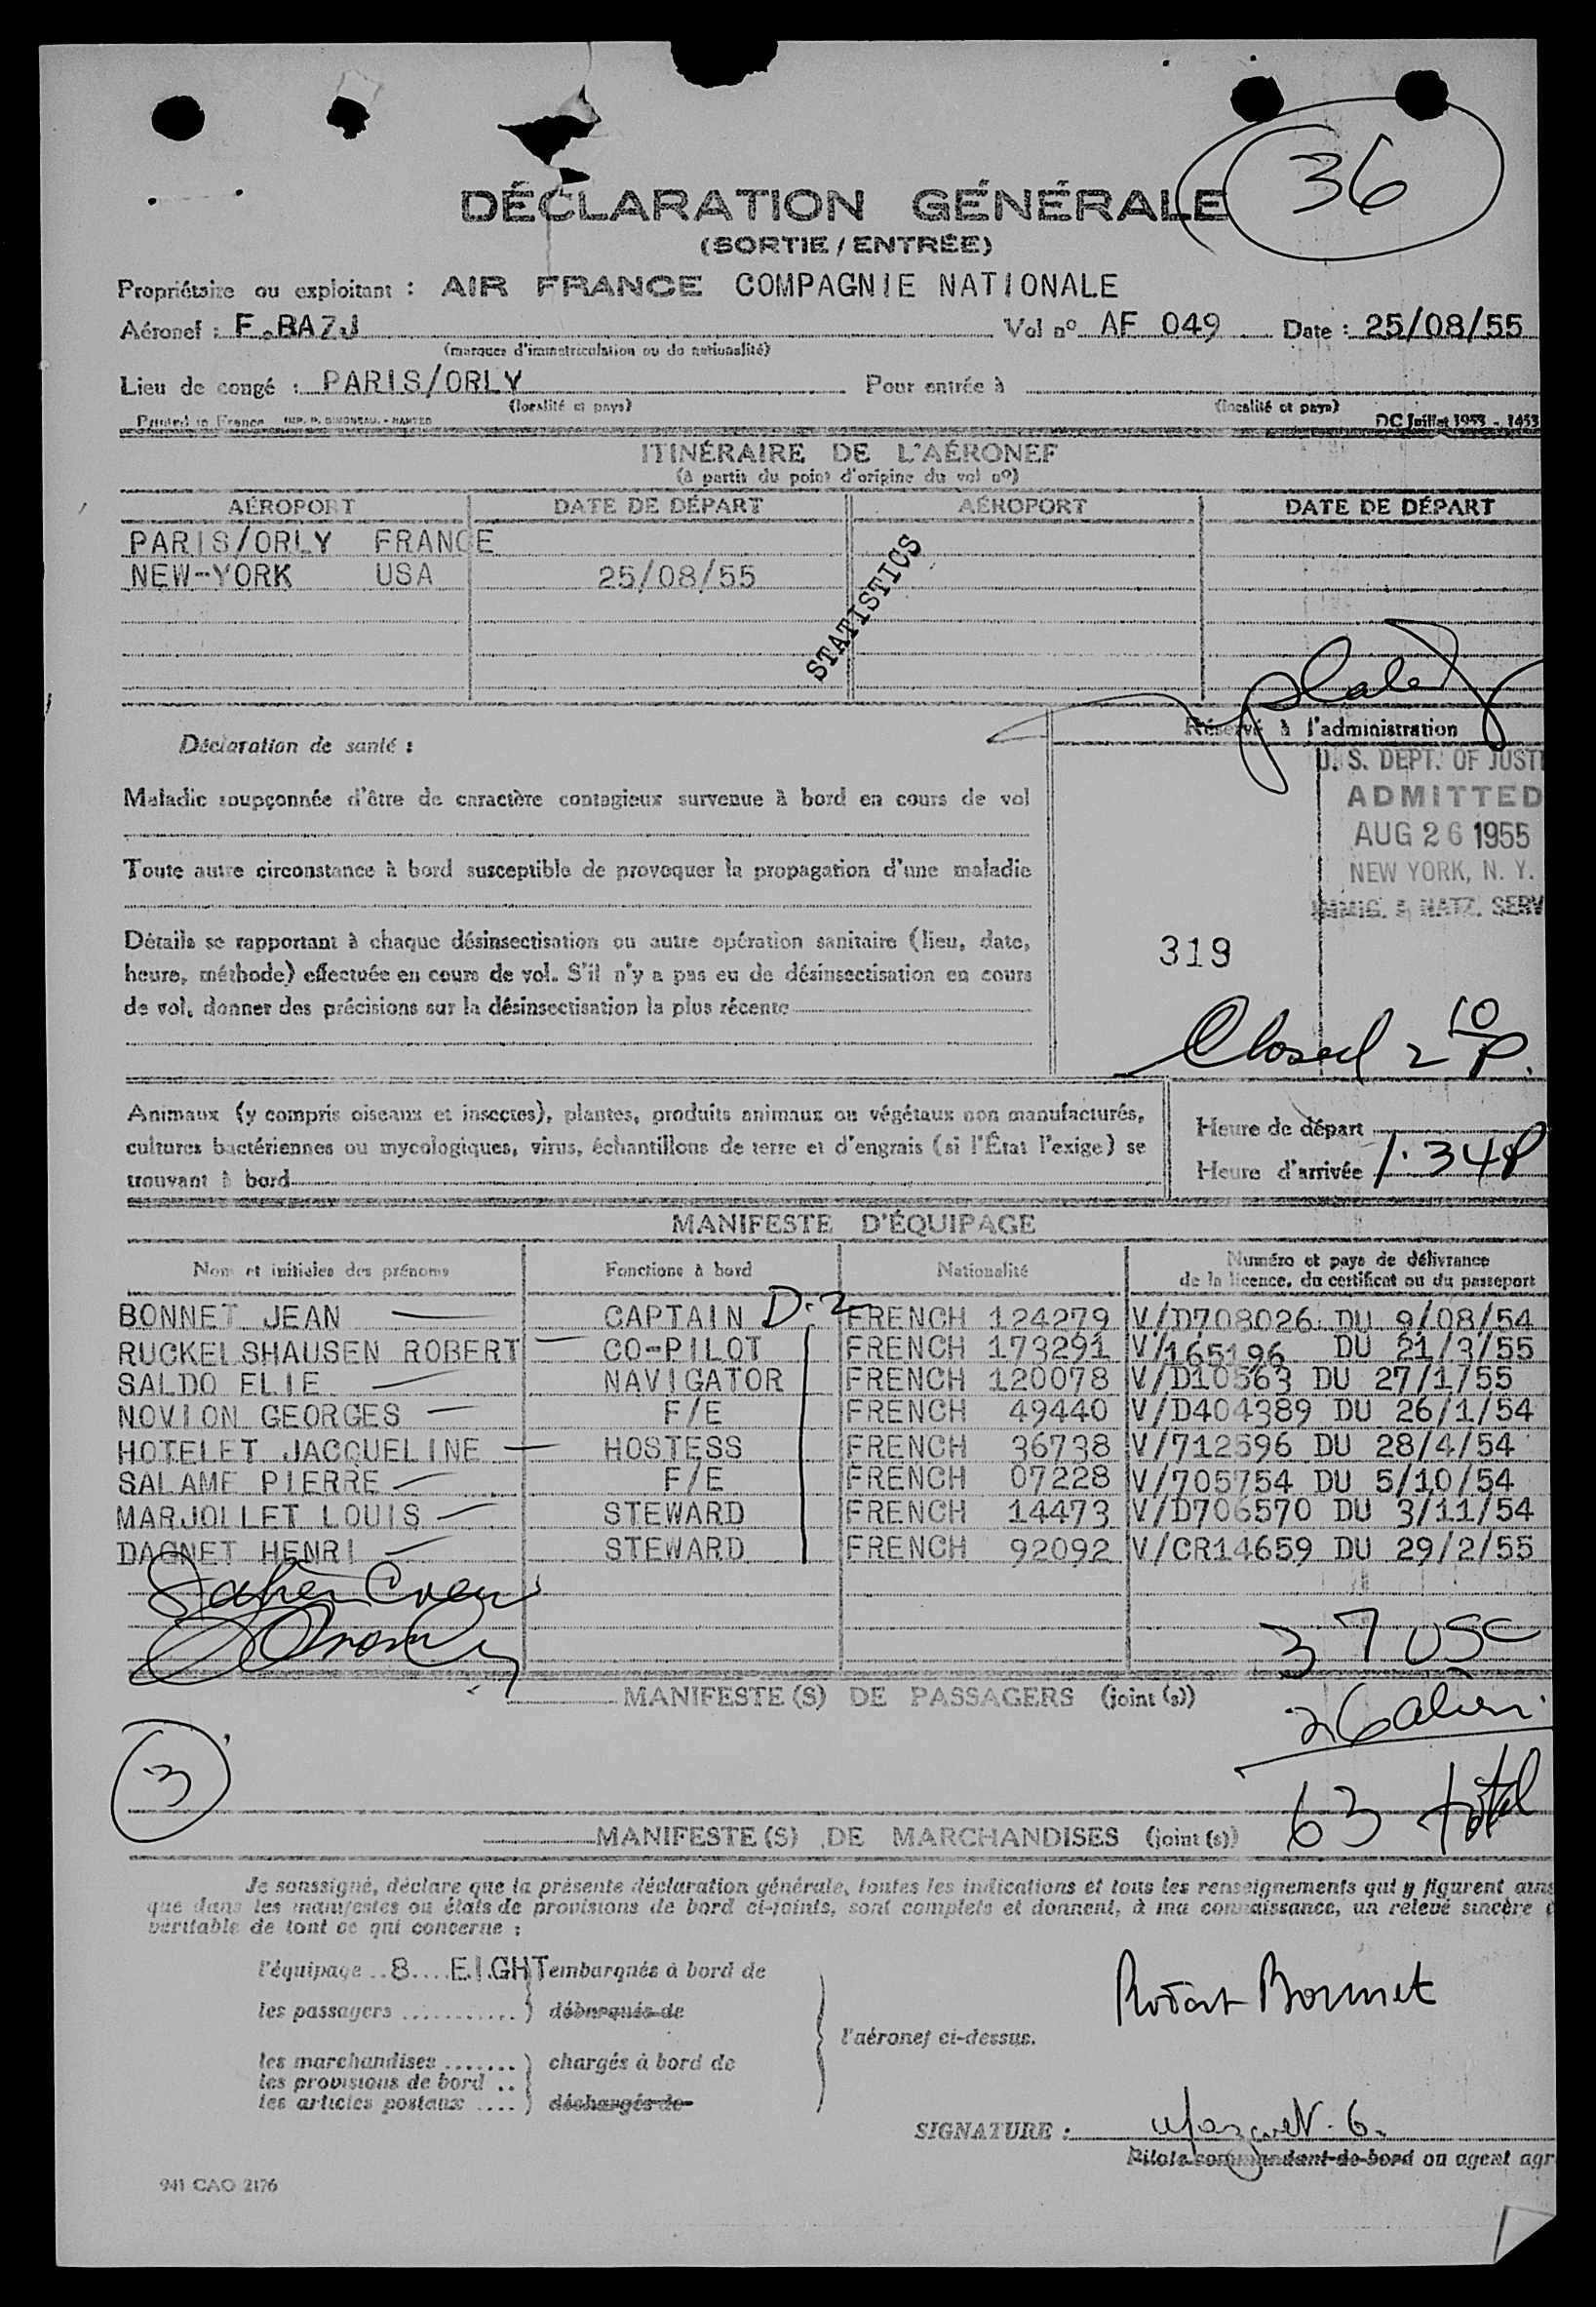 36
DÉCLARATION GÉNÉRALE
(SORTIE / ENTRÉE)
Propriétaire ou exploitant : AIR FRANCE COMPAGNIE NATIONALE
Aéronef : F.BAZJ Vol nº AF 049 Date : 25/08/55
(marques d'immatriculation ou de nationalité)
Lieu de congé : PARIS/ORLY Pour entrée à
(localité et pays) (localité et pays)
Printed in France DC Juillet 1953 - 1453
ITINÉRAIRE DE L'AÉRONEF
(à partir du point d'origine du vol nº)
AÉROPORT DATE DE DÉPART AÉROPORT DATE DE DÉPART
PARIS/ORLY FRANCE
NEW-YORK USA 25/08/55
STATISTICS
Réservé à l'administration
Déclaration de santé :
U. S. DEPT. OF JUSTI
ADMITTED
AUG 26 1955
NEW YORK, N. Y.
IMMIG. & NATZ. SERV
Maladie soupçonnée d'être de caractère contagieux survenue à bord en cours de vol
Toute autre circonstance à bord susceptible de provoquer la propagation d'une maladie
Détails se rapportant à chaque désinsectisation ou autre opération sanitaire (lieu, date,
heure, méthode) effectuée en cours de vol. S'il n'y a pas eu de désinsectisation en cours
de vol, donner des précisions sur la désinsectisation la plus récente
319
Closed 2 10 P.
Animaux (y compris oiseaux et insectes), plantes, produits animaux ou végétaux non manufacturés,
cultures bactériennes ou mycologiques, virus, échantillons de terre et d'engrais (si l'État l'exige) se
trouvant à bord
Heure de départ
Heure d'arrivée 1.34P
MANIFESTE D'ÉQUIPAGE
Nom et initiales des prénoms Fonctions à bord Nationalité Numéro et pays de délivrance
de la licence, du certificat ou du passeport
BONNET JEAN CAPTAIN D-2 FRENCH 124279 V/D708026 DU 9/08/54
RUCKELSHAUSEN ROBERT CO-PILOT FRENCH 173291 V/165196 DU 21/3/55
SALDO ELIE NAVIGATOR FRENCH 120078 V/D10563 DU 27/1/55
NOVION GEORGES F/E FRENCH 49440 V/D404389 DU 26/1/54
HOTELET JACQUELINE HOSTESS FRENCH 36738 V/712596 DU 28/4/54
SALAME PIERRE F/E FRENCH 07228 V/705754 DU 5/10/54
MARJOLLET LOUIS STEWARD FRENCH 14473 V/D706570 DU 3/11/54
DAGNET HENRI STEWARD FRENCH 92092 V/CR14659 DU 29/2/55
37 USC
MANIFESTE (S) DE PASSAGERS (joint (s))
26 alien
3
63 total
MANIFESTE (S) DE MARCHANDISES (joint (s))
Je soussigné, déclare que la présente déclaration générale, toutes les indications et tous les renseignements qui y figurent ains
que dans les manifestes ou états de provisions de bord ci-joints, sont complets et donnent, à ma connaissance, un relevé sincère e
véritable de tout ce qui concerne :
l'équipage 8 EIGHT embarqués à bord de
les passagers débarqués de
l'aéronef ci-dessus.
les marchandises chargés à bord de
les provisions de bord
les articles postaux déchargés de
SIGNATURE :
Pilote commandant de bord ou agent agr
941 CAO 2176